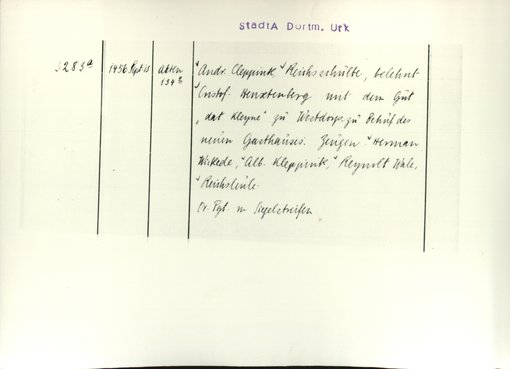 StadtA Dortm. Urk
3283ª 1456 Akten "Andr. Cleppink, "Reichsschulte, belehnt
"Cristof. Henxtenberg mit dem Gut
„dat Kleyne" zu Westdorp zu Behuf des
neuen Gasthauses. Zeugen: "Herman
Wickede, "Alb. Kleppink, "Reynolt Wale,
"Reichsleute.
Or. Pgt. m. Siegelstreifen